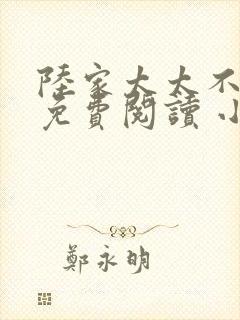 陸家太太不
免費閱讀 小
鄭永明